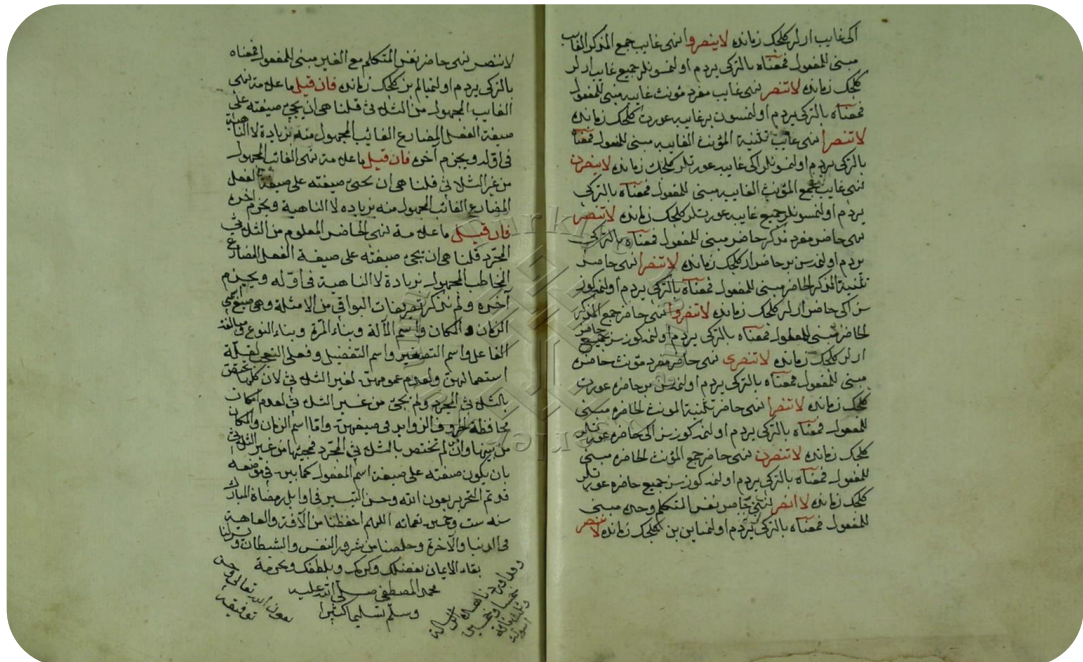 اكى غايب ارلر كلجك زمانده لاينصروا نهى غايب جمع المذكر الغايب
مبنى للمفعول فمعناه بالتركى يردم اولنمسونلر جميع غايب ارلر
كلجك زمانده لاتنصر نهى غايب مفرد مؤنث غايبه مبنى للمفعول
فمعناه بالتركى يردم اولنمسون بر غايبه عورت كلجك زمانده
لاتنصرا نهى غايب تثنية المؤنث الغايبه مبنى للمفعول فمعناه
بالتركى يردم اولنمسونلر اكى غايبه عورتلر كلجك زمانده لاينصرن
نهى غايب جمع المؤنث الغايبه مبنى للمفعول فمعناه بالتركى
يردم اولنمسونلر جميع غايبه عورتلر كلجك زمانده لاتنصر
نهى حاضر مفرد مذكر حاضر مبنى للمفعول فمعناه بالتركى
يردم اولنمه سن بر حاضر ار كلجك زمانده لاتنصرا نهى حاضر
تثنية المذكر الحاضر مبنى للمفعول فمعناه بالتركى يردم
اكى حاضر ارلر كلجك زمانده لاتنصروا نهى حاضر جمع المذكر
الحاضر مبنى للمفعول فمعناه بالتركى يردم اولنمه كوز سز جميع حاضر
ارلر كلجك زمانده لاتنصرى نهى حاضر مفرد مؤنث حاضره
مبنى للمفعول فمعناه بالتركى يردم اولنمه سن بر حاضره عورت
كلجك زمانده لاتنصرا نهى حاضر تثنية المؤنث الحاضره مبنى
للمفعول فمعناه بالتركى يردم اولنمه كوز سز اكى حاضره عورتلر
كلجك زمانده لاتنصرن نهى حاضر جمع المؤنث الحاضره مبنى
للمفعول فمعناه بالتركى يردم اولنمه كوز سز جميع حاضره عورتلر
كلجك زمانده لاانصر نهى حاضر نفس المتكلم وحده مبنى
للمفعول فمعناه بالتركى يردم اولنمياين بن كلجك زمانده لاننصر
لاننصر نهى حاضر نفس المتكلم مع الغير مبنى للمفعول فمعناه
بالتركى يردم اولنميالم بز كلجك زمانده فان قيل ما علامة نهى
الغايب المجهول من الثلاثى قلنا هى ان يجئ صيغته على
صيغة الفعل المضارع الغائب المجهول منه بزيادة لا الناهية
فى اوله ويجزم آخره فان قيل ما علامة نهى الغائب المجهول
من غير الثلاثى قلنا هى ان يجئ صيغته على صيغة الفعل
المضارع الغائب المجهول منه بزيادة لا الناهية ويجزم آخره
فان قيل ما علامة نهى الحاضر المعلوم من الثلاثى
المجرد قلنا هى ان يجئ صيغته على صيغة الفعل المضارع
المخاطب المجهول بزيادة لا الناهية فى اوله ويجزم
آخره ولم نذكر تصريفات البواقى من الامثلة وهى
الزمان والمكان واسم الآلة وبناء المرة وبناء النوع
الفاعل واسم التصغير واسم التفضيل وفعلى التعجب لقلة
استعمالهن ولعدم عمومهن لغير الثلاثى لان
بالثلاثى المجرد ولم يجئ من غير الثلاثى لعدم امكان
محافظة الحروف الزوايد فى صيغهن واما اسم الزمان والمكان
وان لم يختص بالثلاثى المجرد فمجيئهما من غير الثلاثى
بان يكون صيغته على صيغة اسم المفعول كما بين فى موضعه
قد تم التحرير بعون الله وحسن التيسير فى اوايل رمضان المبارك
سنه ست وخمسين اللهم احفظنا من الآفة والعاهة
فى الدنيا والآخرة وخلصنا من شرور النفس والشيطان
بقاء الايمان بفضلك وكرمك وبلطفك وبحرمة
محمد المصطفى صلى الله عليه
وسلم تسليما كثيرا
بعون الله تعالى وحسن
توفيقه